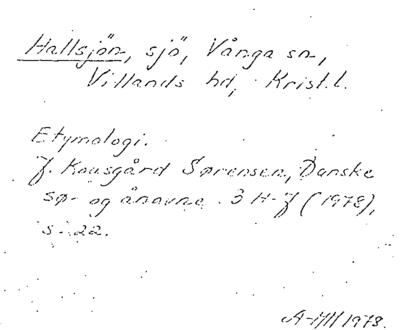 Hallsjön, sjö, Vånga sn,
Villands hd, Krist. l.
Etymologi.
J. Kousgård Sørensen, Danske
sø- og ånavne 3 H-J (1978),
s. 22.
1978.